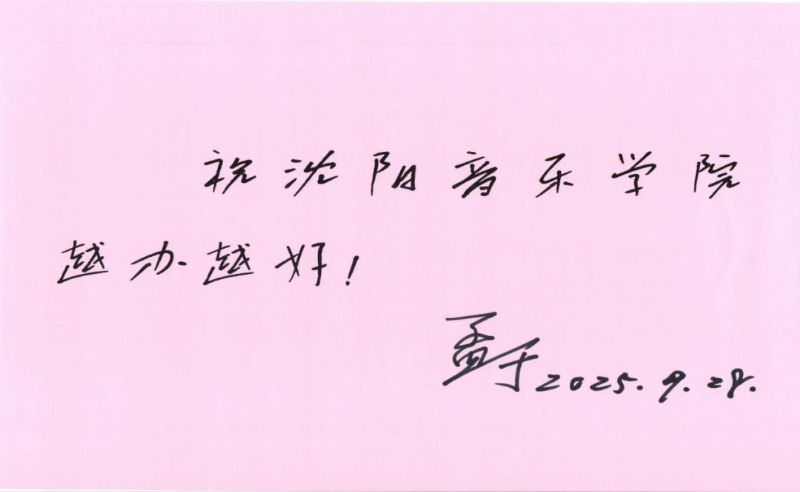 祝沈阳音乐学院
越办越好！
孟于2025.9.28.